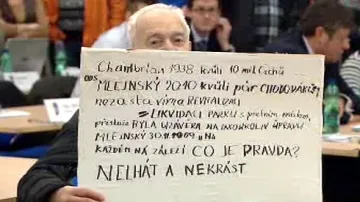 Chamberlain 1938 kvůli 10 mil Čechů
ODS MLEJNSKÝ 2010 kvůli pár CHODOVÁKŮM
nezastavíme REVITALIZACI
= LIKVIDACI PARKU s pietním místem,
BYLA UZÁVĚRA NA JAKOUKOLIV ÚPRAVU
MLEJNSKÝ 30.11.2009 NE
KAŽDÉM NÁZOR ZÁLEŽÍ CO JE PRAVDA?
NELHÁT A NEKRÁST